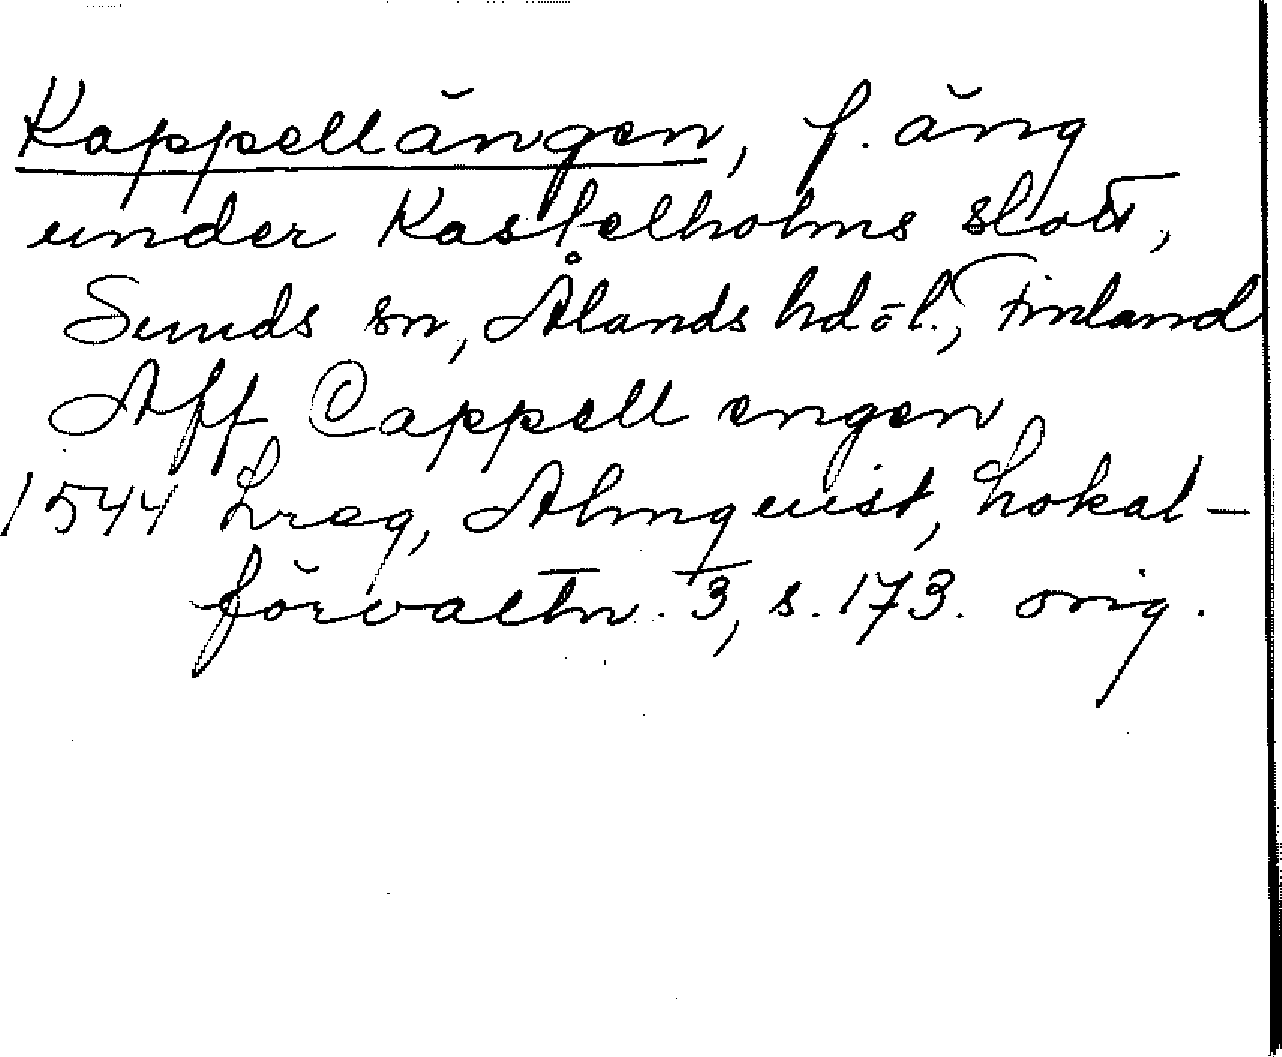 Kappellängen, f. äng
under Kastelholms slott,
Sunds sn, Ålands hd o l., Finland
Aff Cappell engen
1544 Lreg, Almquist, Lokal-
förvaltn. 3, s. 173. orig.